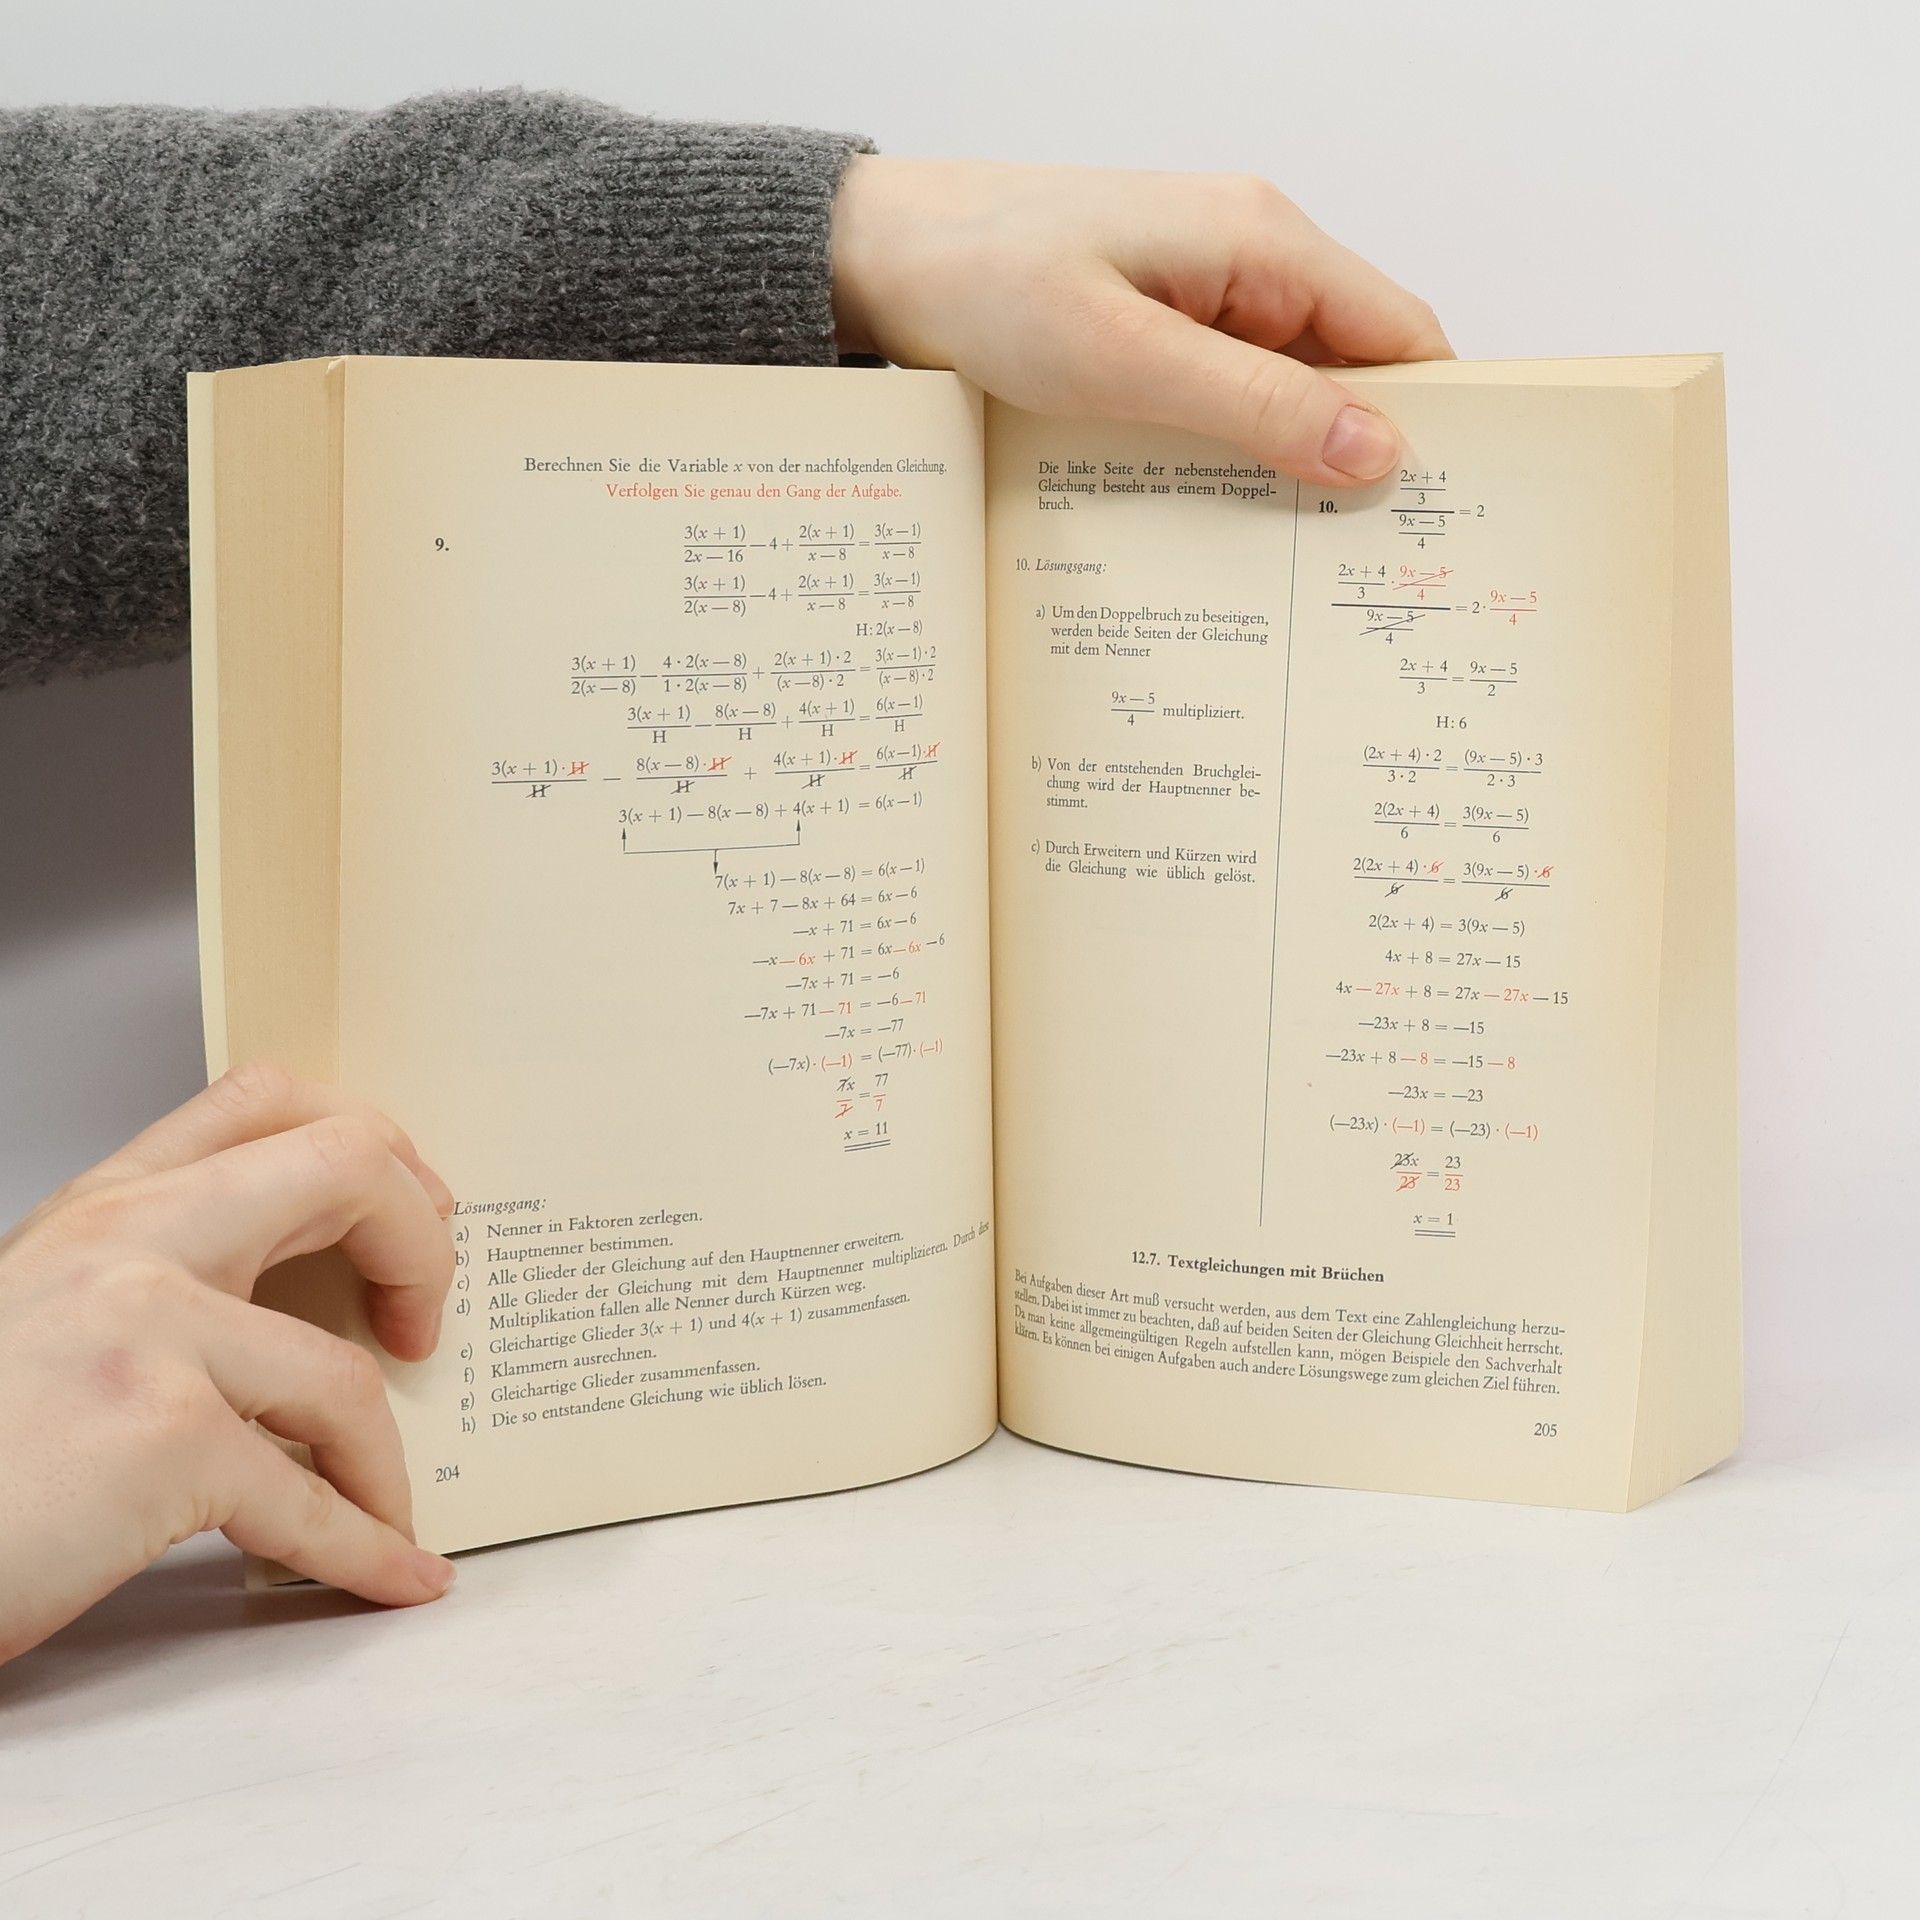 Berechnen Sie die Variable x von der nachfolgenden Gleichung.
Verfolgen Sie genau den Gang der Aufgabe.
9. 3(x + 1)/(2x — 16) — 4 + 2(x + 1)/(x — 8) = 3(x — 1)/(x — 8)
3(x + 1)/(2(x — 8)) — 4 + 2(x + 1)/(x — 8) = 3(x — 1)/(x — 8)
H: 2(x — 8)
3(x + 1)/(2(x — 8)) — 4 · 2(x — 8)/(1 · 2(x — 8)) + 2(x + 1) · 2/((x — 8) · 2) = 3(x — 1) · 2/((x — 8) · 2)
3(x + 1)/H — 8(x — 8)/H + 4(x + 1)/H = 6(x — 1)/H
3(x + 1) · H/H — 8(x — 8) · H/H + 4(x + 1) · H/H = 6(x — 1) · H/H
3(x + 1) — 8(x — 8) + 4(x + 1) = 6(x — 1)
7(x + 1) — 8(x — 8) = 6(x — 1)
7x + 7 — 8x + 64 = 6x — 6
—x + 71 = 6x — 6
—x — 6x + 71 = 6x — 6x — 6
—7x + 71 = —6
—7x + 71 — 71 = —6 — 71
—7x = —77
(—7x) · (—1) = (—77) · (—1)
7x/7 = 77/7
x = 11
Lösungsgang:
a) Nenner in Faktoren zerlegen.
b) Hauptnenner bestimmen.
c) Alle Glieder der Gleichung auf den Hauptnenner erweitern.
d) Alle Glieder der Gleichung mit dem Hauptnenner multiplizieren. Durch diese
Multiplikation fallen alle Nenner durch Kürzen weg.
e) Gleichartige Glieder 3(x + 1) und 4(x + 1) zusammenfassen.
f) Klammern ausrechnen.
g) Gleichartige Glieder zusammenfassen.
h) Die so entstandene Gleichung wie üblich lösen.
204
Die linke Seite der nebenstehenden
Gleichung besteht aus einem Doppel-
bruch.
10. Lösungsgang:
a) Um den Doppelbruch zu beseitigen,
werden beide Seiten der Gleichung
mit dem Nenner
(9x — 5)/4 multipliziert.
b) Von der entstehenden Bruchglei-
chung wird der Hauptnenner be-
stimmt.
c) Durch Erweitern und Kürzen wird
die Gleichung wie üblich gelöst.
10. ((2x + 4)/3)/((9x — 5)/4) = 2
((2x + 4)/3 · (9x — 5)/4)/((9x — 5)/4) = 2 · (9x — 5)/4
(2x + 4)/3 = (9x — 5)/2
H: 6
(2x + 4) · 2/(3 · 2) = (9x — 5) · 3/(2 · 3)
2(2x + 4)/6 = 3(9x — 5)/6
2(2x + 4) · 6/6 = 3(9x — 5) · 6/6
2(2x + 4) = 3(9x — 5)
4x + 8 = 27x — 15
4x — 27x + 8 = 27x — 27x — 15
—23x + 8 = —15
—23x + 8 — 8 = —15 — 8
—23x = —23
(—23x) · (—1) = (—23) · (—1)
23x/23 = 23/23
x = 1
12.7. Textgleichungen mit Brüchen
Bei Aufgaben dieser Art muß versucht werden, aus dem Text eine Zahlengleichung herzu-
stellen. Dabei ist immer zu beachten, daß auf beiden Seiten der Gleichung Gleichheit herrscht.
Da man keine allgemeingültigen Regeln aufstellen kann, mögen Beispiele den Sachverhalt
klären. Es können bei einigen Aufgaben auch andere Lösungswege zum gleichen Ziel führen.
205